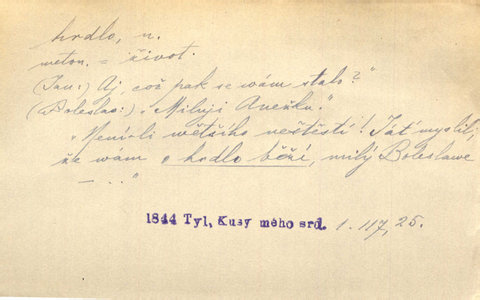 hrdlo, n.
meton. = život.
(Jan:) Aj, což pak se wám stalo?"
(Boleslav:) „Miluji Anežku."
„Není-li wětšího neštěstí! Jáť myslil,
že wám o hrdlo běží, milý Boleslawe
— ..."
1844 Tyl, Kusy mého srd. 1. 117, 25.